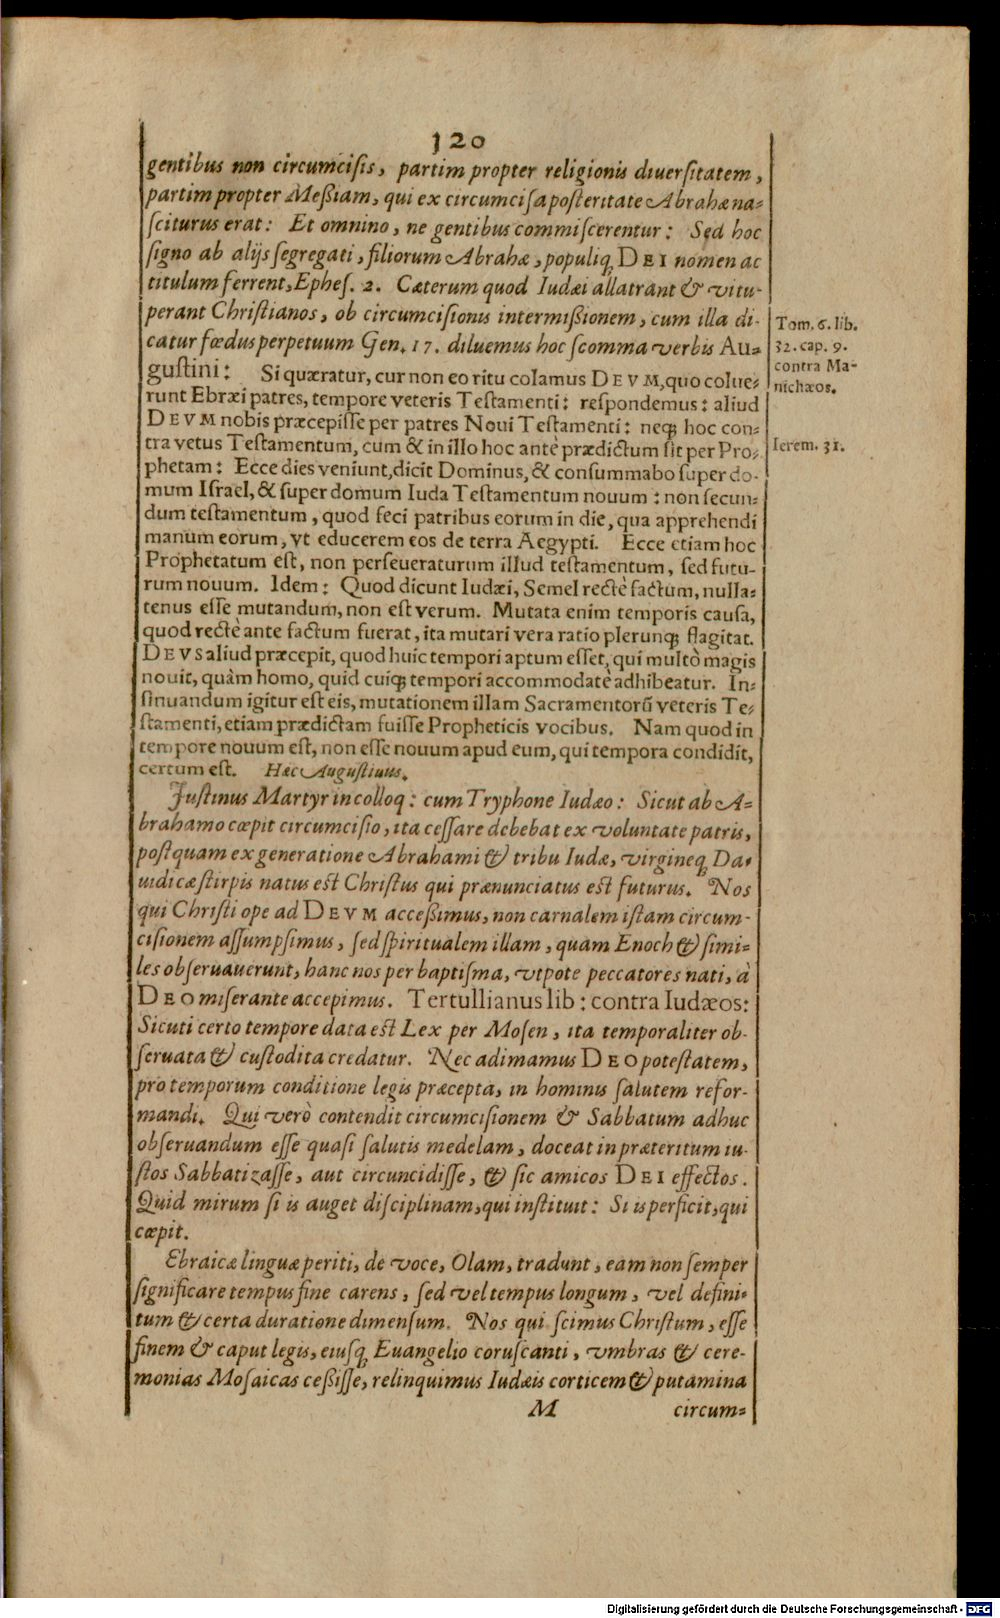 120
gentibus non circumcisis, partim propter religionis diuersitatem,
partim propter Meßiam, qui ex circumcisa posteritate Abrahæ na=
sciturus erat: Et omnino, ne gentibus commiscerentur: Sed hoc
signo ab alijs segregati, filiorum Abrahæ, populiq́; DEI nomen ac
titulum ferrent, Ephes. 2. Cæterum quod Iudæi allatrant & vitu-
perant Christianos, ob circumcisionis intermißionem, cum illa di-
catur fœdus perpetuum Gen. 17. diluemus hoc scomma verbis Au=
gustini: Si quæratur, cur non eo ritu colamus DEVM, quo colue=
runt Ebræi patres, tempore veteris Testamenti: respondemus: aliud
DEVM nobis præcepisse per patres Noui Testamenti: neq; hoc con=
tra vetus Testamentum, cum & in illo hoc antè prædictum sit per Pro=
phetam: Ecce dies veniunt, dicit Dominus, & consummabo super do-
mum Israel, & super domum Iuda Testamentum nouum: non secun=
dum testamentum, quod feci patribus eorum in die, qua apprehendi
manum eorum, vt educerem eos de terra Aegypti. Ecce etiam hoc
Prophetatum est, non perseueraturum illud testamentum, sed futu-
rum nouum. Idem: Quod dicunt Iudæi, Semel rectè factum, nulla=
tenus esse mutandum, non est verum. Mutata enim temporis causa,
quod rectè ante factum fuerat, ita mutari vera ratio plerunq; flagitat.
DEVS aliud præcepit, quod huic tempori aptum esset, qui multò magis
nouit, quàm homo, quid cuiq; tempori accommodatè adhibeatur. In=
sinuandum igitur est eis, mutationem illam Sacramentorũ veteris Te=
stamenti, etiam prædictam fuisse Propheticis vocibus. Nam quod in
tempore nouum est, non esse nouum apud eum, qui tempora condidit,
certum est. Hæc Augustinus.
Justinus Martyr in colloq: cum Tryphone Iudæo: Sicut ab A=
brahamo cœpit circumcisio, ita cessare debebat ex voluntate patris,
postquam ex generatione Abrahami & tribu Iudæ, virgineq; Da=
uidicæ stirpis natus est Christus qui prænunciatus est futurus. Nos
qui Christi ope ad DEVM acceßimus, non carnalem istam circum-
cisionem assumpsimus, sed spiritualem illam, quam Enoch & simi=
les obseruauerunt, hanc nos per baptisma, vtpote peccatores nati, à
DEO miserante accepimus. Tertullianus lib: contra Iudæos:
Sicuti certo tempore data est Lex per Mosen, ita temporaliter ob-
seruata & custodita credatur. Nec adimamus DEO potestatem,
pro temporum conditione legis præcepta, in hominis salutem refor-
mandi. Qui verò contendit circumcisionem & Sabbatum adhuc
obseruandum esse quasi salutis medelam, doceat in præteritum iu-
stos Sabbatizasse, aut circuncidisse, & sic amicos DEI effectos.
Quid mirum si is auget disciplinam, qui instituit: Si is perficit, qui
cœpit.
Ebraicæ linguæ periti, de voce, Olam, tradunt, eam non semper
significare tempus fine carens, sed vel tempus longum, vel defini=
tum & certa duratione dimensum. Nos qui scimus Christum, esse
finem & caput legis, eiusq; Euangelio coruscanti, vmbras & cere-
monias Mosaicas ceßisse, relinquimus Iudæis corticem & putamina
M circum=
Tom. 6. lib.
32. cap. 9.
contra Ma-
nichæos.
Ierem. 31.
Digitalisierung gefördert durch die Deutsche Forschungsgemeinschaft - DFG